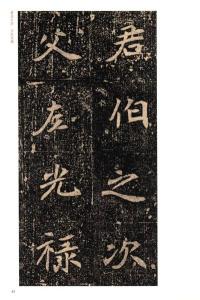 君伯之次
父左光禄